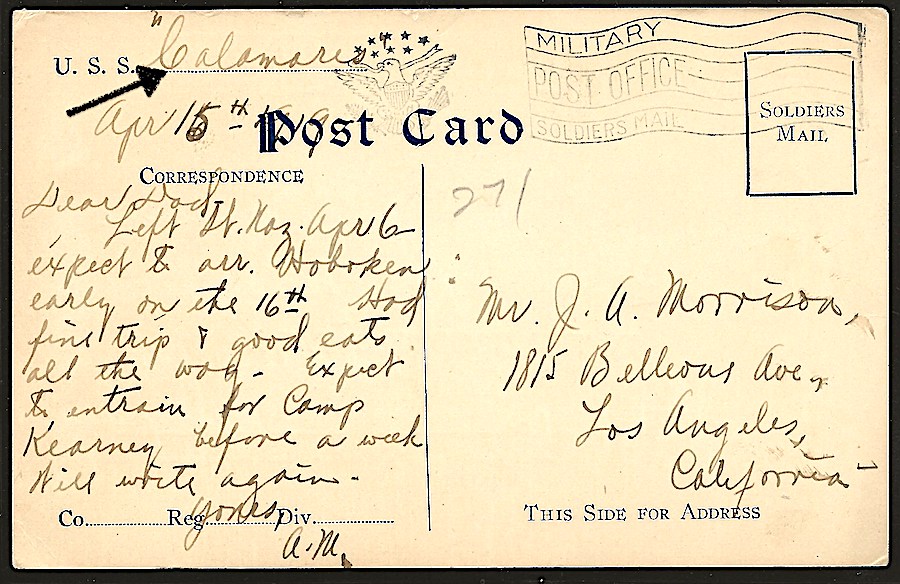 U. S. S. "Calamares"
Apr 15th - 1919
Post Card
MILITARY
POST OFFICE
SOLDIERS MAIL
SOLDIERS
MAIL
CORRESPONDENCE
Dear Dad,
Left St. Naz. Apr 6
expect to arr. Hoboken
early on the 16th Had
fine trip & good eats
all the way - Expect
to entrain for Camp
Kearney before a week
Will write again -
Yours,
A.M.
Co. Reg. Div.
271
Mr. J. A. Morrison,
1815 Bellevue Ave.,
Los Angeles,
California
THIS SIDE FOR ADDRESS